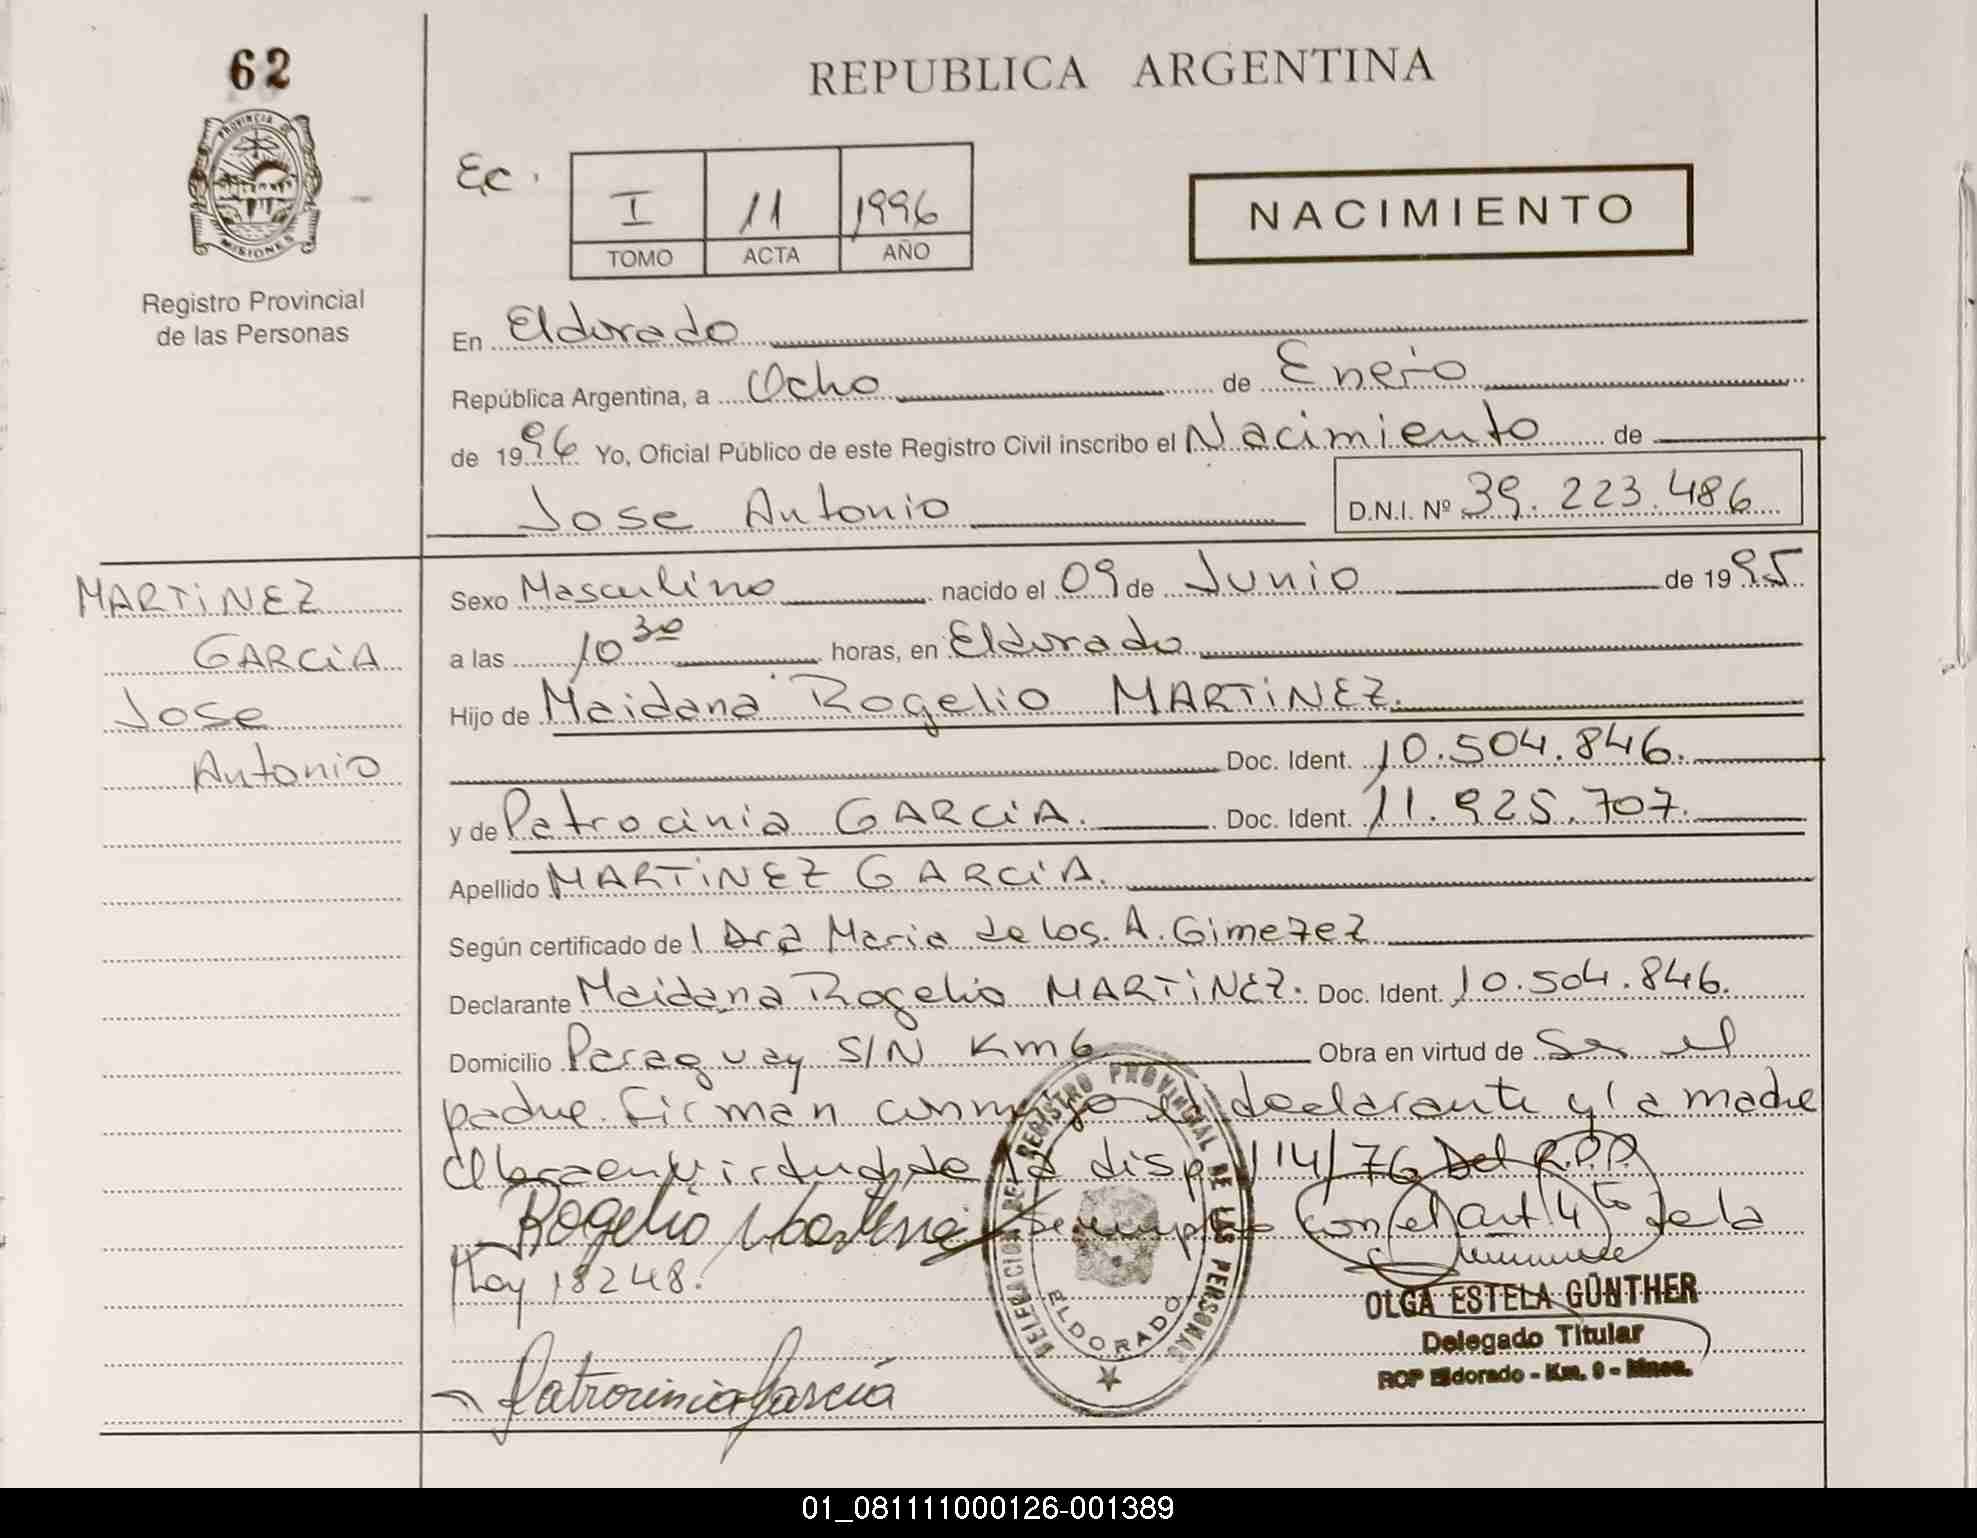 62
REPUBLICA ARGENTINA
PROVINCIA DE
MISIONES
Registro Provincial
de las Personas
Ec.
I 11 1996
TOMO ACTA AÑO
NACIMIENTO
En Eldorado
República Argentina, a Ocho de Enero
de 1996 Yo, Oficial Público de este Registro Civil inscribo el Nacimiento de
Jose Antonio D.N.I. Nº 39.223.486
MARTiNEZ
GARCiA
Jose
Antonio
Sexo Masculino nacido el 09 de Junio de 1995
a las 10 30 horas, en Eldorado
Hijo de Maidana Rogelio MARTiNEZ.
Doc. Ident. 10.504.846.
y de Patrocinia GARCiA. Doc. Ident. 11.925.707.
Apellido MARTiNEZ GARCiA.
Según certificado de 1 Dra Maria de los. A. Gimezez
Declarante Maidana Rogelio MARTiNEZ. Doc. Ident. 10.504.846.
Domicilio Paraguay S/N Km 6 Obra en virtud de Ser el
padre. Firman conmigo el declarante y la madre
Obra en virtud de la disp 114/76 Del R.P.P.
Rogelio Martinez Se cumple con el art. 4to de la
Ley 18248.
DELEGACION DEL REGISTRO PROVINCIAL DE LAS PERSONAS
ELDORADO
OLGA ESTELA GÜNTHER
Delegado Titular
RCP Eldorado - Km. 9 - Mnes.
Patrocinia Garcia
01_081111000126-001389